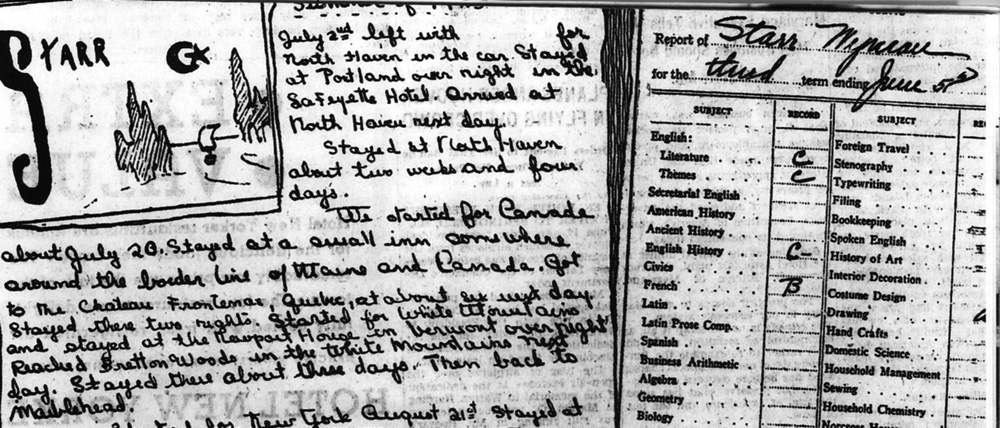 STARR
July 2nd left with for
North Haven in the car. Stayed
at Portland over night in the
Lafayette Hotel arrived at
North Haven next day.
Stayed at North Haven
about two weeks and four
days.
We started for Canada
about July 20. Stayed at a small inn somewhere
around the border line of Maine and Canada. Got
to the Chateau Frontenac, Quebec, at about six next day
Stayed there two nights. Started for White Mountains
and stayed at the Newport House in Vermont over night
Reached Bretton Woods in the White Mountains next
day. Stayed there about three days. Then back to
Marblehead.
for New York August 21st Stayed at
Report of Starr Wyman
for the third term ending June 5
SUBJECT RECORD
English:
Literature C
Themes C
Secretarial English
American History
Ancient History
English History C-
Civics
French B
Latin
Latin Prose Comp.
Spanish
Business Arithmetic
Algebra
Geometry
Biology
SUBJECT
Foreign Travel
Stenography
Typewriting
Filing
Bookkeeping
Spoken English
History of Art
Interior Decoration
Costume Design
Drawing
Hand Crafts
Domestic Science
Household Management
Sewing
Household Chemistry
HOTEL NEW